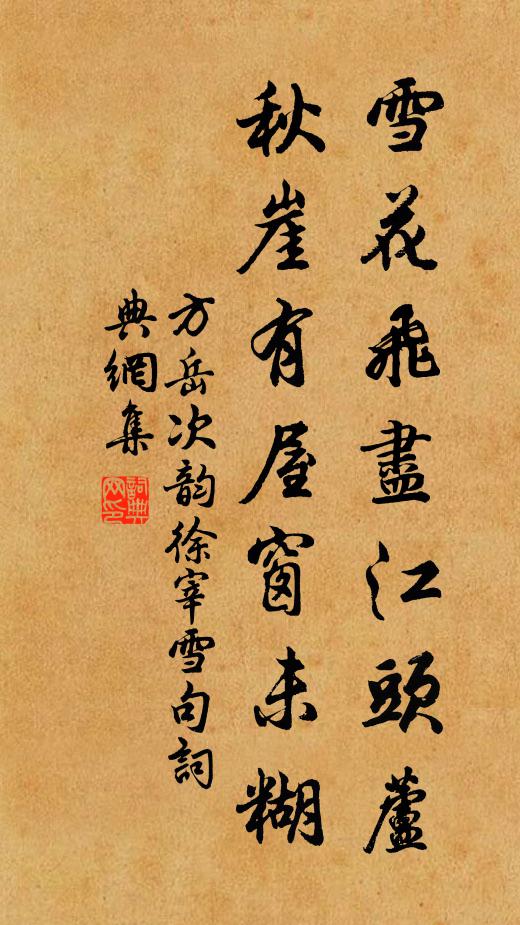 雪花飛盡江頭蘆
秋崖有屋窗未糊
方岳次韵徐宰雪句詞
典網集
詞典网印